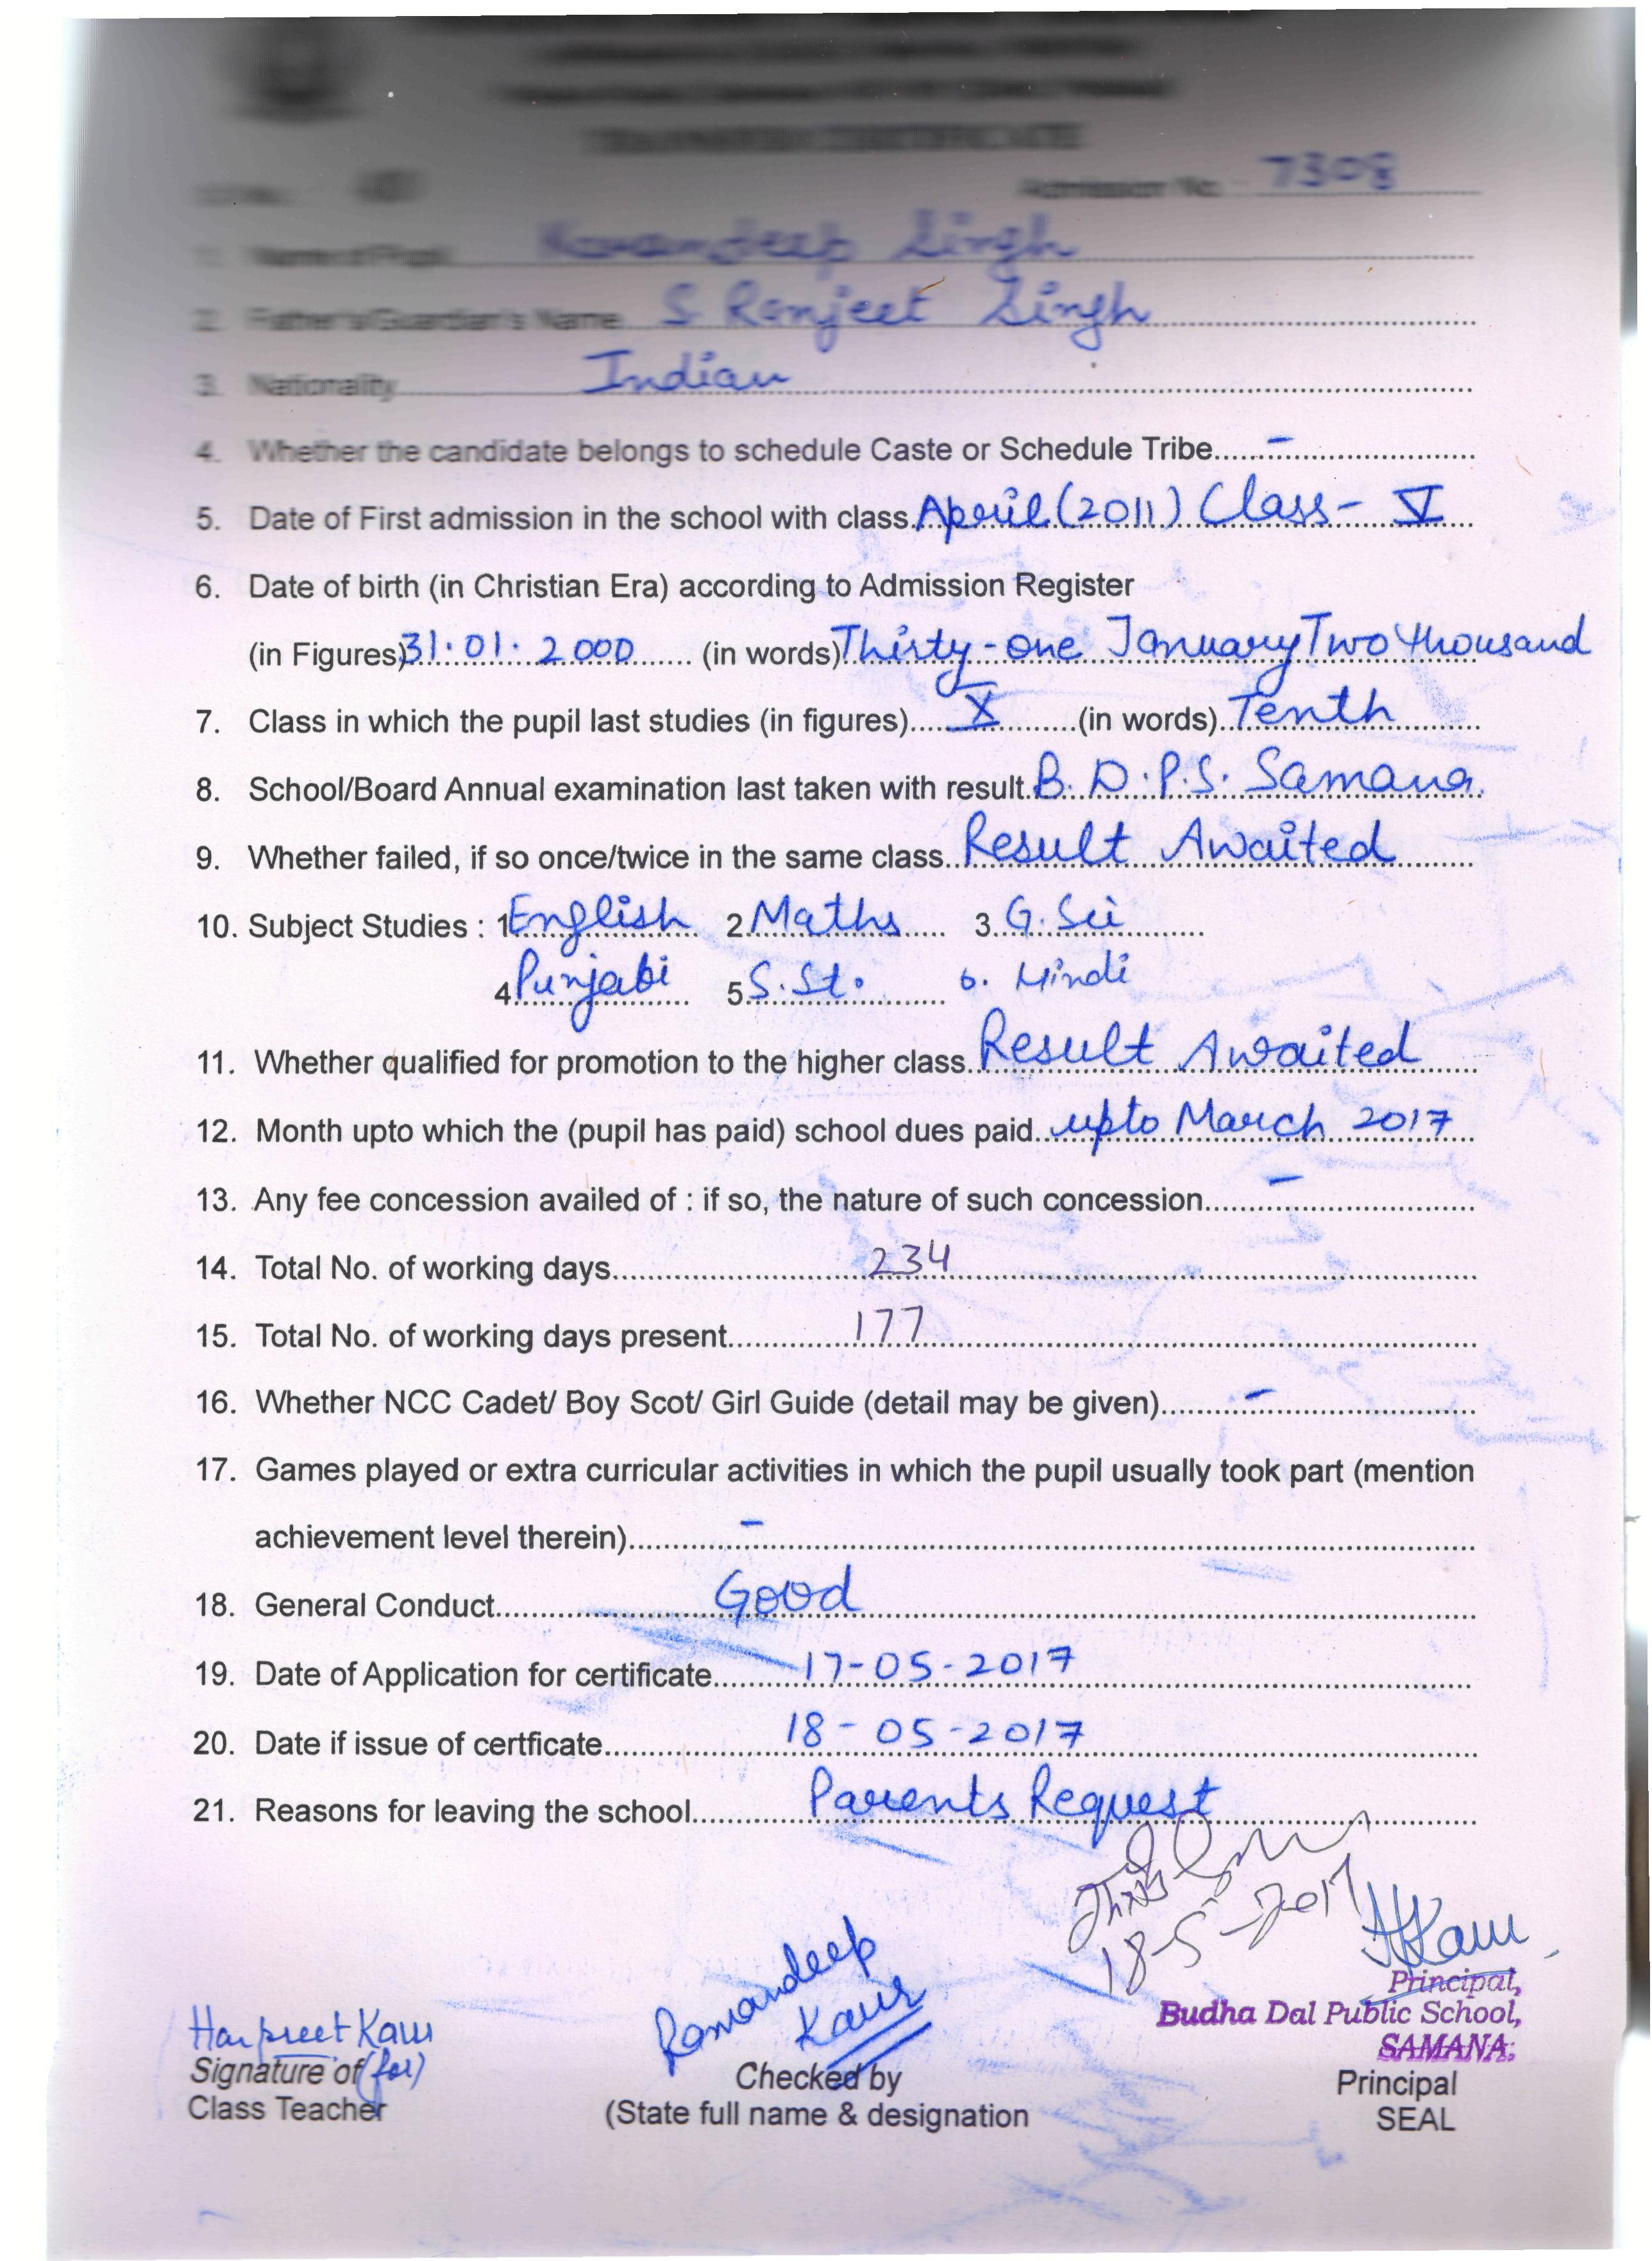 TRANSFER CERTIFICATE
Admission No. 7308
1. Name of Pupil Karandeep Singh
2. Father's/Guardian's Name S Ranjeet Singh
3. Nationality Indian
4. Whether the candidate belongs to schedule Caste or Schedule Tribe –
5. Date of First admission in the school with class April (2011) Class - V
6. Date of birth (in Christian Era) according to Admission Register
(in Figures) 31.01.2000 (in words) Thirty-one January Two thousand
7. Class in which the pupil last studies (in figures) X (in words) Tenth
8. School/Board Annual examination last taken with result B.D.P.S. Samana
9. Whether failed, if so once/twice in the same class Result Awaited
10. Subject Studies : 1 English 2 Maths 3 G. Sci
4 Punjabi 5 S.St. 6. Hindi
11. Whether qualified for promotion to the higher class Result Awaited
12. Month upto which the (pupil has paid) school dues paid upto March 2017
13. Any fee concession availed of : if so, the nature of such concession –
14. Total No. of working days 234
15. Total No. of working days present 177
16. Whether NCC Cadet/ Boy Scot/ Girl Guide (detail may be given) –
17. Games played or extra curricular activities in which the pupil usually took part (mention
achievement level therein) –
18. General Conduct Good
19. Date of Application for certificate 17-05-2017
20. Date if issue of certficate 18-05-2017
21. Reasons for leaving the school Parents Request
18-5-2017
Kaur
Principal,
Budha Dal Public School,
SAMANA.
Harpreet Kaur
Signature of (for)
Class Teacher
Ramandeep
Kaur
Checked by
(State full name & designation
Principal
SEAL